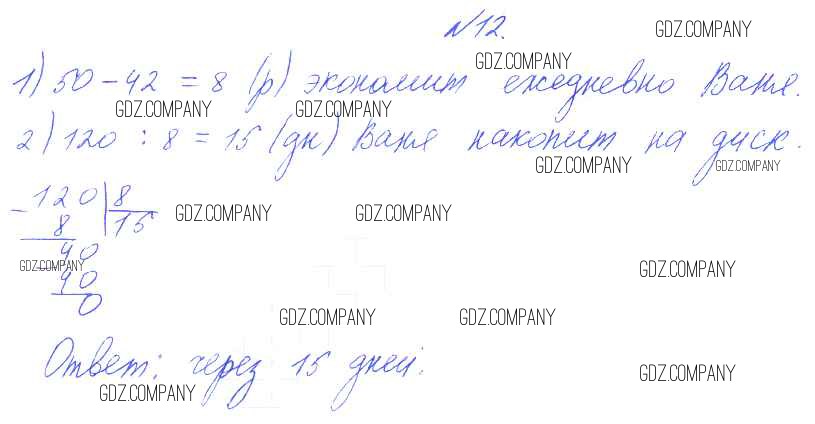 №12.
GDZ.COMPANY
GDZ.COMPANY
1) 50 - 42 = 8 (р) экономит ежедневно Ваня.
GDZ.COMPANY GDZ.COMPANY
2) 120 : 8 = 15 (дн) Ваня накопит на диск.
GDZ.COMPANY GDZ.COMPANY
- 120 | 8
8 | 15
GDZ.COMPANY GDZ.COMPANY
40
GDZ.COMPANY
- 40
GDZ.COMPANY
0
GDZ.COMPANY GDZ.COMPANY
Ответ: через 15 дней.
GDZ.COMPANY
GDZ.COMPANY